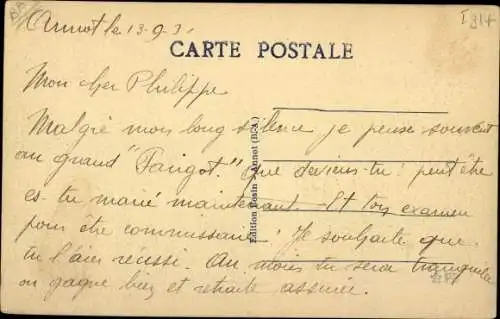 Annot le 13-9-31
I 314
CARTE POSTALE
Mon cher Philippe
Malgré mon long silence je pense souvent
au grand "Fangot." Que deviens-tu? peut être
es-tu marié maintenant. Et ton examen
pour être commissaire? Je souhaite que
tu l'aies réussi. Au moins tu seras tranquille
on gagne bien et retraite assurée.
Edition Bosin - Annot (B.A.)